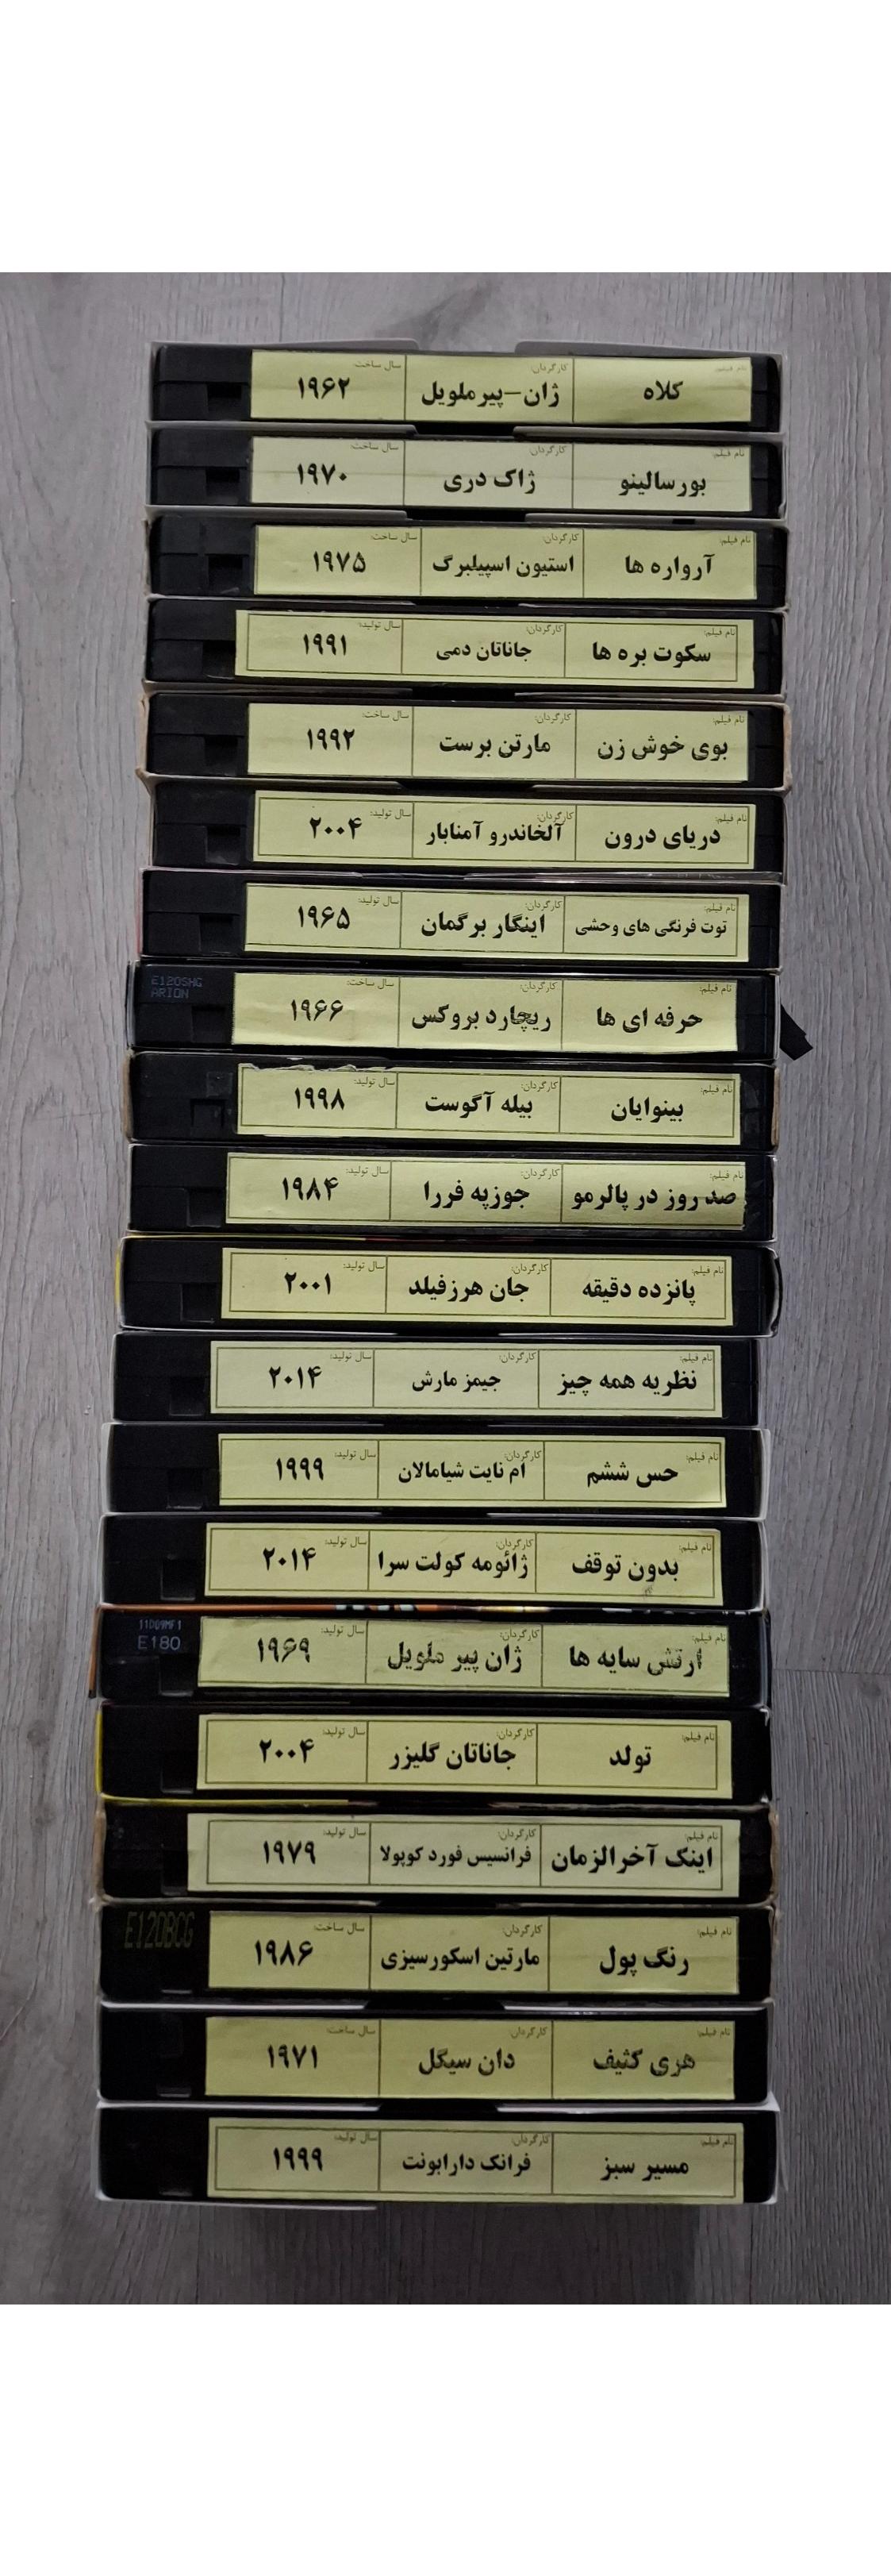 نام فیلم: کارگردان: سال ساخت:
کلاه ژان-پیر ملویل ۱۹۶۲
نام فیلم: کارگردان: سال ساخت:
بورسالینو ژاک دری ۱۹۷۰
نام فیلم: کارگردان: سال ساخت:
آرواره ها استیون اسپیلبرگ ۱۹۷۵
نام فیلم: کارگردان: سال تولید:
سکوت بره ها جاناتان دمی ۱۹۹۱
نام فیلم: کارگردان: سال ساخت:
بوی خوش زن مارتن برست ۱۹۹۲
نام فیلم: کارگردان: سال تولید:
دریای درون آلخاندرو آمنابار ۲۰۰۴
نام فیلم: کارگردان: سال تولید:
توت فرنگی های وحشی اینگار برگمان ۱۹۶۵
E120SHG
ARION
نام فیلم: کارگردان: سال ساخت:
حرفه ای ها ریچارد بروکس ۱۹۶۶
نام فیلم: کارگردان: سال تولید:
بینوایان بیله آگوست ۱۹۹۸
نام فیلم: کارگردان: سال تولید:
صد روز در پالرمو جوزپه فررا ۱۹۸۴
نام فیلم: کارگردان: سال تولید:
پانزده دقیقه جان هرزفیلد ۲۰۰۱
نام فیلم: کارگردان: سال تولید:
نظریه همه چیز جیمز مارش ۲۰۱۴
نام فیلم: کارگردان: سال تولید:
حس ششم ام نایت شیامالان ۱۹۹۹
نام فیلم: کارگردان: سال تولید:
بدون توقف ژائومه کولت سرا ۲۰۱۴
E180
نام فیلم: کارگردان: سال تولید:
ارتش سایه ها ژان پیر ملویل ۱۹۶۹
نام فیلم: کارگردان: سال تولید:
تولد جاناتان گلیزر ۲۰۰۴
نام فیلم: کارگردان: سال تولید:
اینک آخرالزمان فرانسیس فورد کوپولا ۱۹۷۹
E120BCG
نام فیلم: کارگردان: سال ساخت:
رنگ پول مارتین اسکورسیزی ۱۹۸۶
نام فیلم: کارگردان: سال ساخت:
هری کثیف دان سیگل ۱۹۷۱
نام فیلم: کارگردان: سال تولید:
مسیر سبز فرانک دارابونت ۱۹۹۹